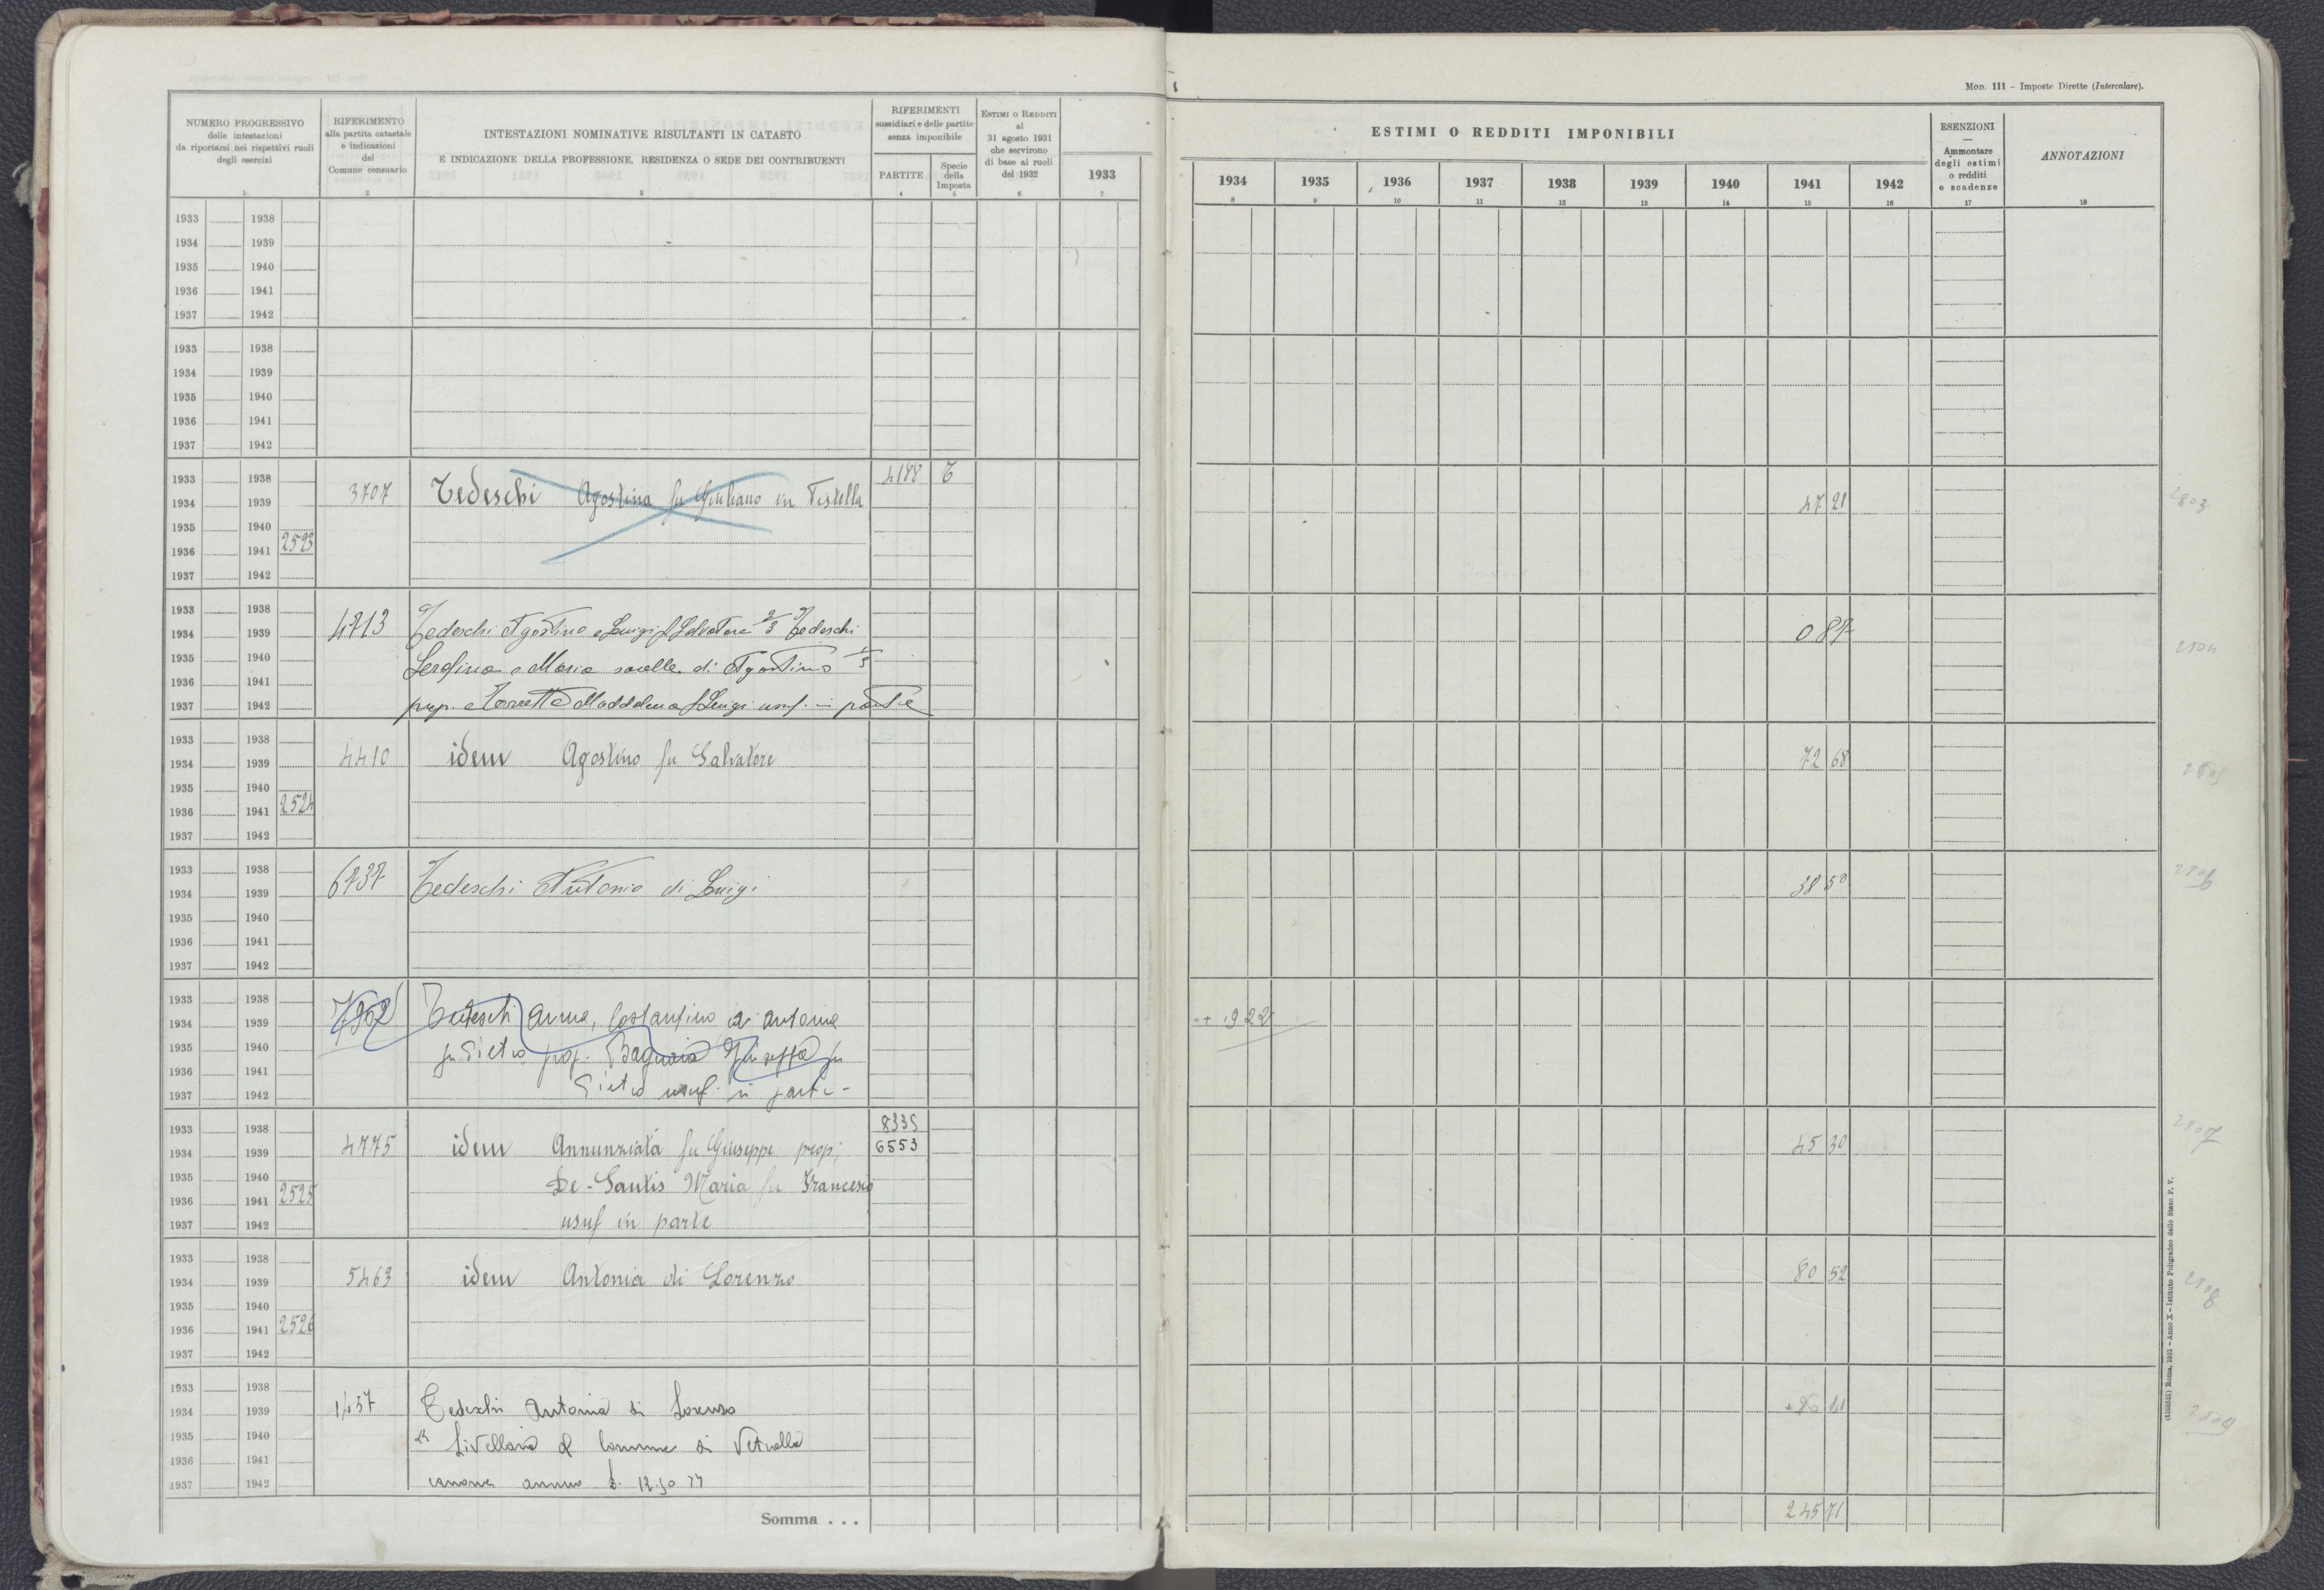 Mod. 111 - Imposte Dirette (Intercalare).
NUMERO PROGRESSIVO
delle intestazioni
da riportarsi nei rispettivi ruoli
degli esercizi
1
RIFERIMENTO
alla partita catastale
e indicazioni
del
Comune censuario
2
INTESTAZIONI NOMINATIVE RISULTANTI IN CATASTO
E INDICAZIONE DELLA PROFESSIONE, RESIDENZA O SEDE DEI CONTRIBUENTI
3
RIFERIMENTI
sussidiari e delle partite
senza imponibile
PARTITE
4
Specie
della
Imposta
5
ESTIMI O REDDITI
al
31 agosto 1931
che servirono
di base ai ruoli
del 1932
6
1933
7
ESTIMI O REDDITI IMPONIBILI
1934 1935 1936 1937 1938 1939 1940 1941 1942
8 9 10 11 12 13 14 15 16
ESENZIONI
—
Ammontare
degli estimi
o redditi
e scadenze
17
ANNOTAZIONI
18
1933 1938
1934 1939
1935 1940
1936 1941
1937 1942
1933 1938
1934 1939
1935 1940
1936 1941
1937 1942
1933 1938 4188 T
1934 1939 3707 Tedeschi Agostina fu Giuliano in Testella 47 21 2803
1935 1940
1936 1941 2523
1937 1942
1933 1938
1934 1939 4713 Tedeschi Agostino e Luigi f Salvatore 2/3 Tedeschi 0 87
1935 1940 Serafina e Maria sorelle di Agostino 1/3
1936 1941
1937 1942 prop. e Maddalena f Luigi usuf. in parte
1933 1938
1934 1939 4410 idem Agostino fu Salvatore 72 68
1935 1940
1936 1941 2524
1937 1942
1933 1938
1934 1939 6737 Tedeschi Antonio di Luigi 38 50 2806
1935 1940
1936 1941
1937 1942
1933 1938
1934 1939 Tedeschi Anna, Costantino e Antonia + 19 22
1935 1940 fu Pietro prop. Giuseppa fu
1936 1941
1937 1942 Pietro usuf. in parte -
1933 1938 8335
1934 1939 4775 idem Annunziata fu Giuseppe prop; 6553 45 30 2807
1935 1940 De-Santis Maria fu Francesco
1936 1941 2525
1937 1942 usuf in parte
1933 1938
1934 1939 5463 idem Antonia di Lorenzo 80 52 2808
1935 1940
1936 1941 2526
1937 1942
1933 1938
1934 1939 1457 Tedeschi Antonia di Lorenzo 2809
1935 1940 Livellaria al Comune di Vetralla
1936 1941
1937 1942 canone annuo £.
Somma . . . 245 71
(4150051) Roma, 1931 - Anno X - Istituto Poligrafico dello Stato P. V.